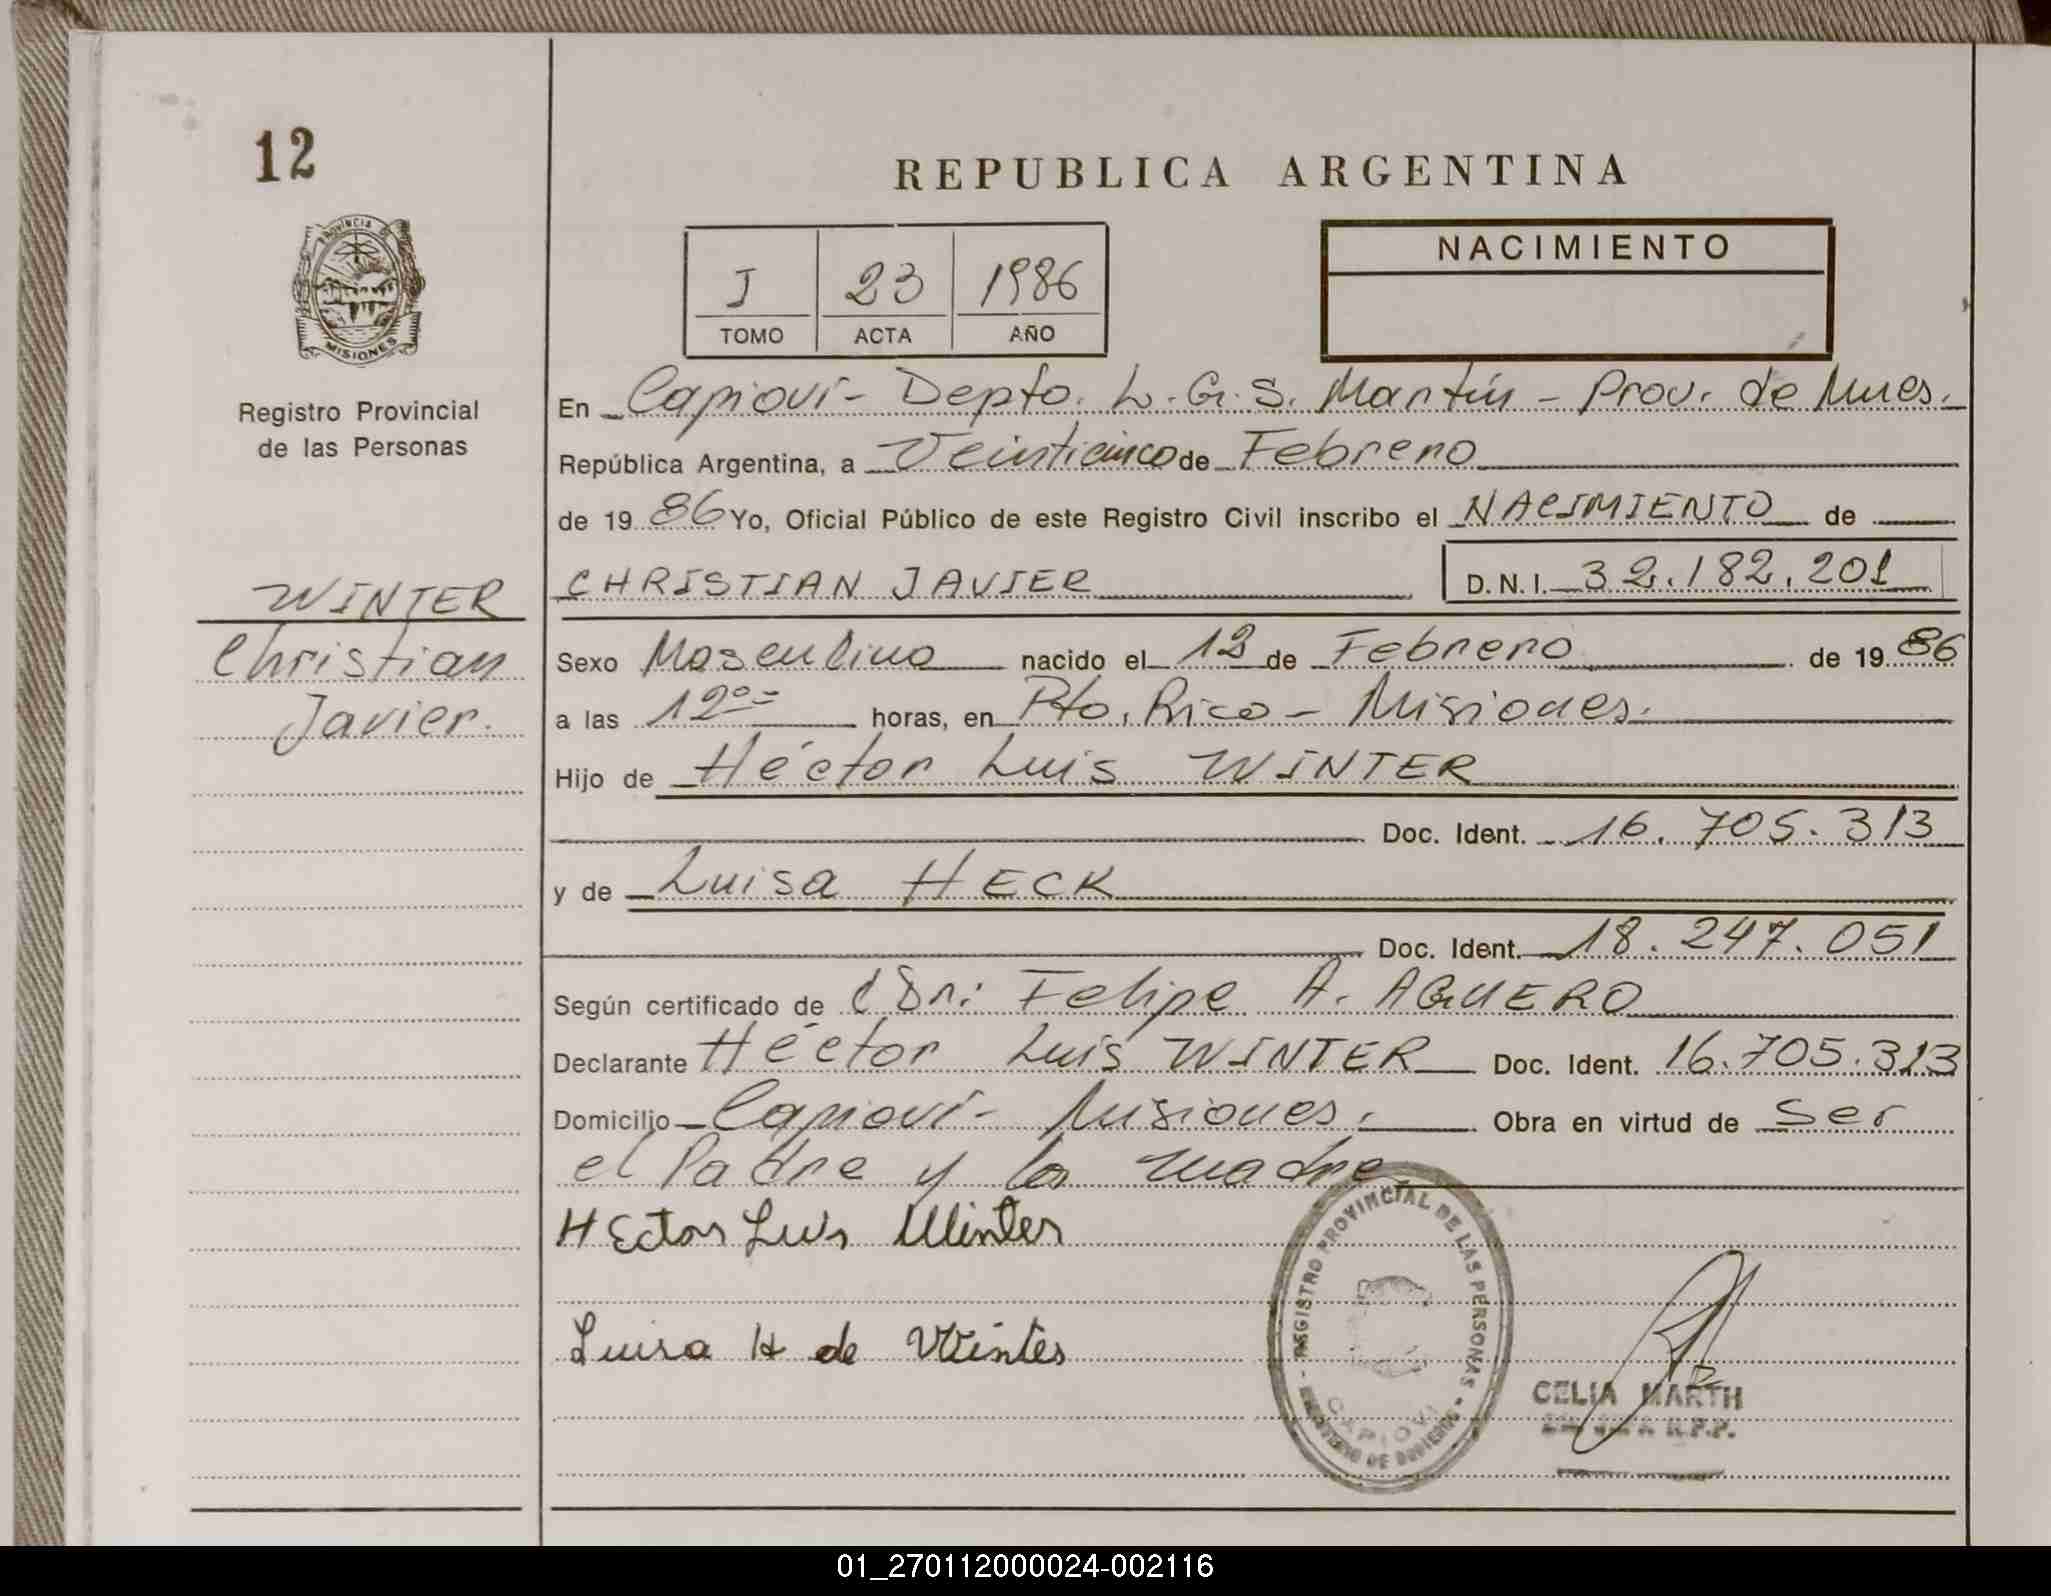 12
REPUBLICA ARGENTINA
PROVINCIA DE
MISIONES
Registro Provincial
de las Personas
NACIMIENTO
I 23 1986
TOMO ACTA AÑO
En Capioví - Depto. L. G. S. Martín - Prov. de Mnes.
República Argentina, a Veinticinco de Febrero
de 1986 Yo, Oficial Público de este Registro Civil inscribo el NACIMIENTO de
CHRISTIAN JAVIER D. N. I. 32.182.201
WINTER
Christian
Javier.
Sexo Masculino nacido el de Febrero de 1986
a las 12 horas, en Pto. Rico - Misiones.
Hijo de Héctor Luis WINTER
Doc. Ident. 16.705.313
y de Luisa HECK
Doc. Ident. 18.247.051
Según certificado de Felipe A. AGUERO
Declarante Héctor Luis WINTER Doc. Ident. 16.705.313
Domicilio Capioví - Misiones. Obra en virtud de ser
el Padre y la madre
HEctor Luis Winter
Luisa H de Winter
REGISTRO PROVINCIAL DE LAS PERSONAS
CAPIOVI
MINISTERIO DE GOBIERNO
CELIA MARTH
R.P.P.
01_270112000024-002116